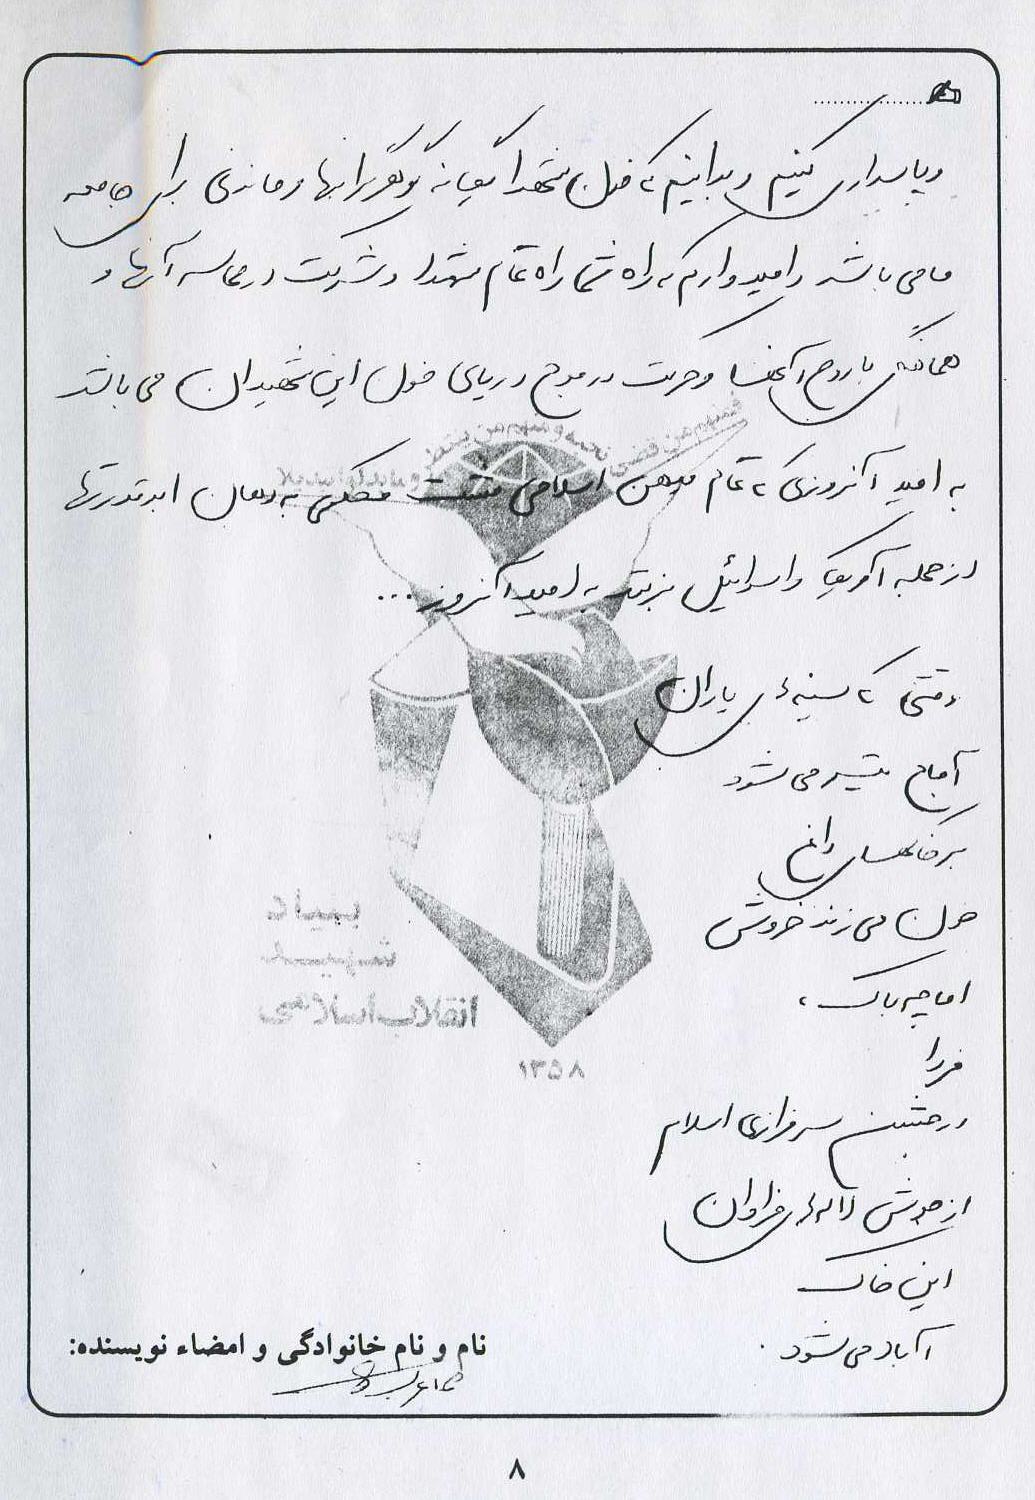 و پاسداری کنیم و بدانیم که خون شهدا یگانه گوهر گرانبها و ماندنی برای جامعه
ما می باشد و امیدوارم که راه شما راه تمام شهدا و شرکت در حماسه آنها و
هماهنگی با روح آنها و حرکت در موج دریای خون این شهیدان می باشد
به امید آنروزی که تمام میهن اسلامی مشت محکمی به دهان ابرقدرتها
از جمله آمریکا و اسرائیل بزنند به امید آنروز ...
وقتی که سینه های یاران
آماج تیر می شود
بر خاکهای داغ
خون می زند خروش
اما چه باک ،
فردا
در جشن سرفرازی اسلام
از جوشش لاله های فراوان
این خاک
آباد می شود .
بنیاد
شهید
انقلاب اسلامی
۱۳۵۸
نام و نام خانوادگی و امضاء نویسنده:
۸